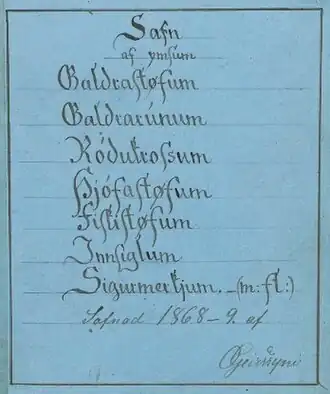 Safn
af ymsum
Galdrastøfum
Galdrarúnum
Róðukrossum
Þjófastøfum
Fiskistøfum
Innsiglum
Sigurmerkjum. – (m: fl:)
Safnað 1868–9 af